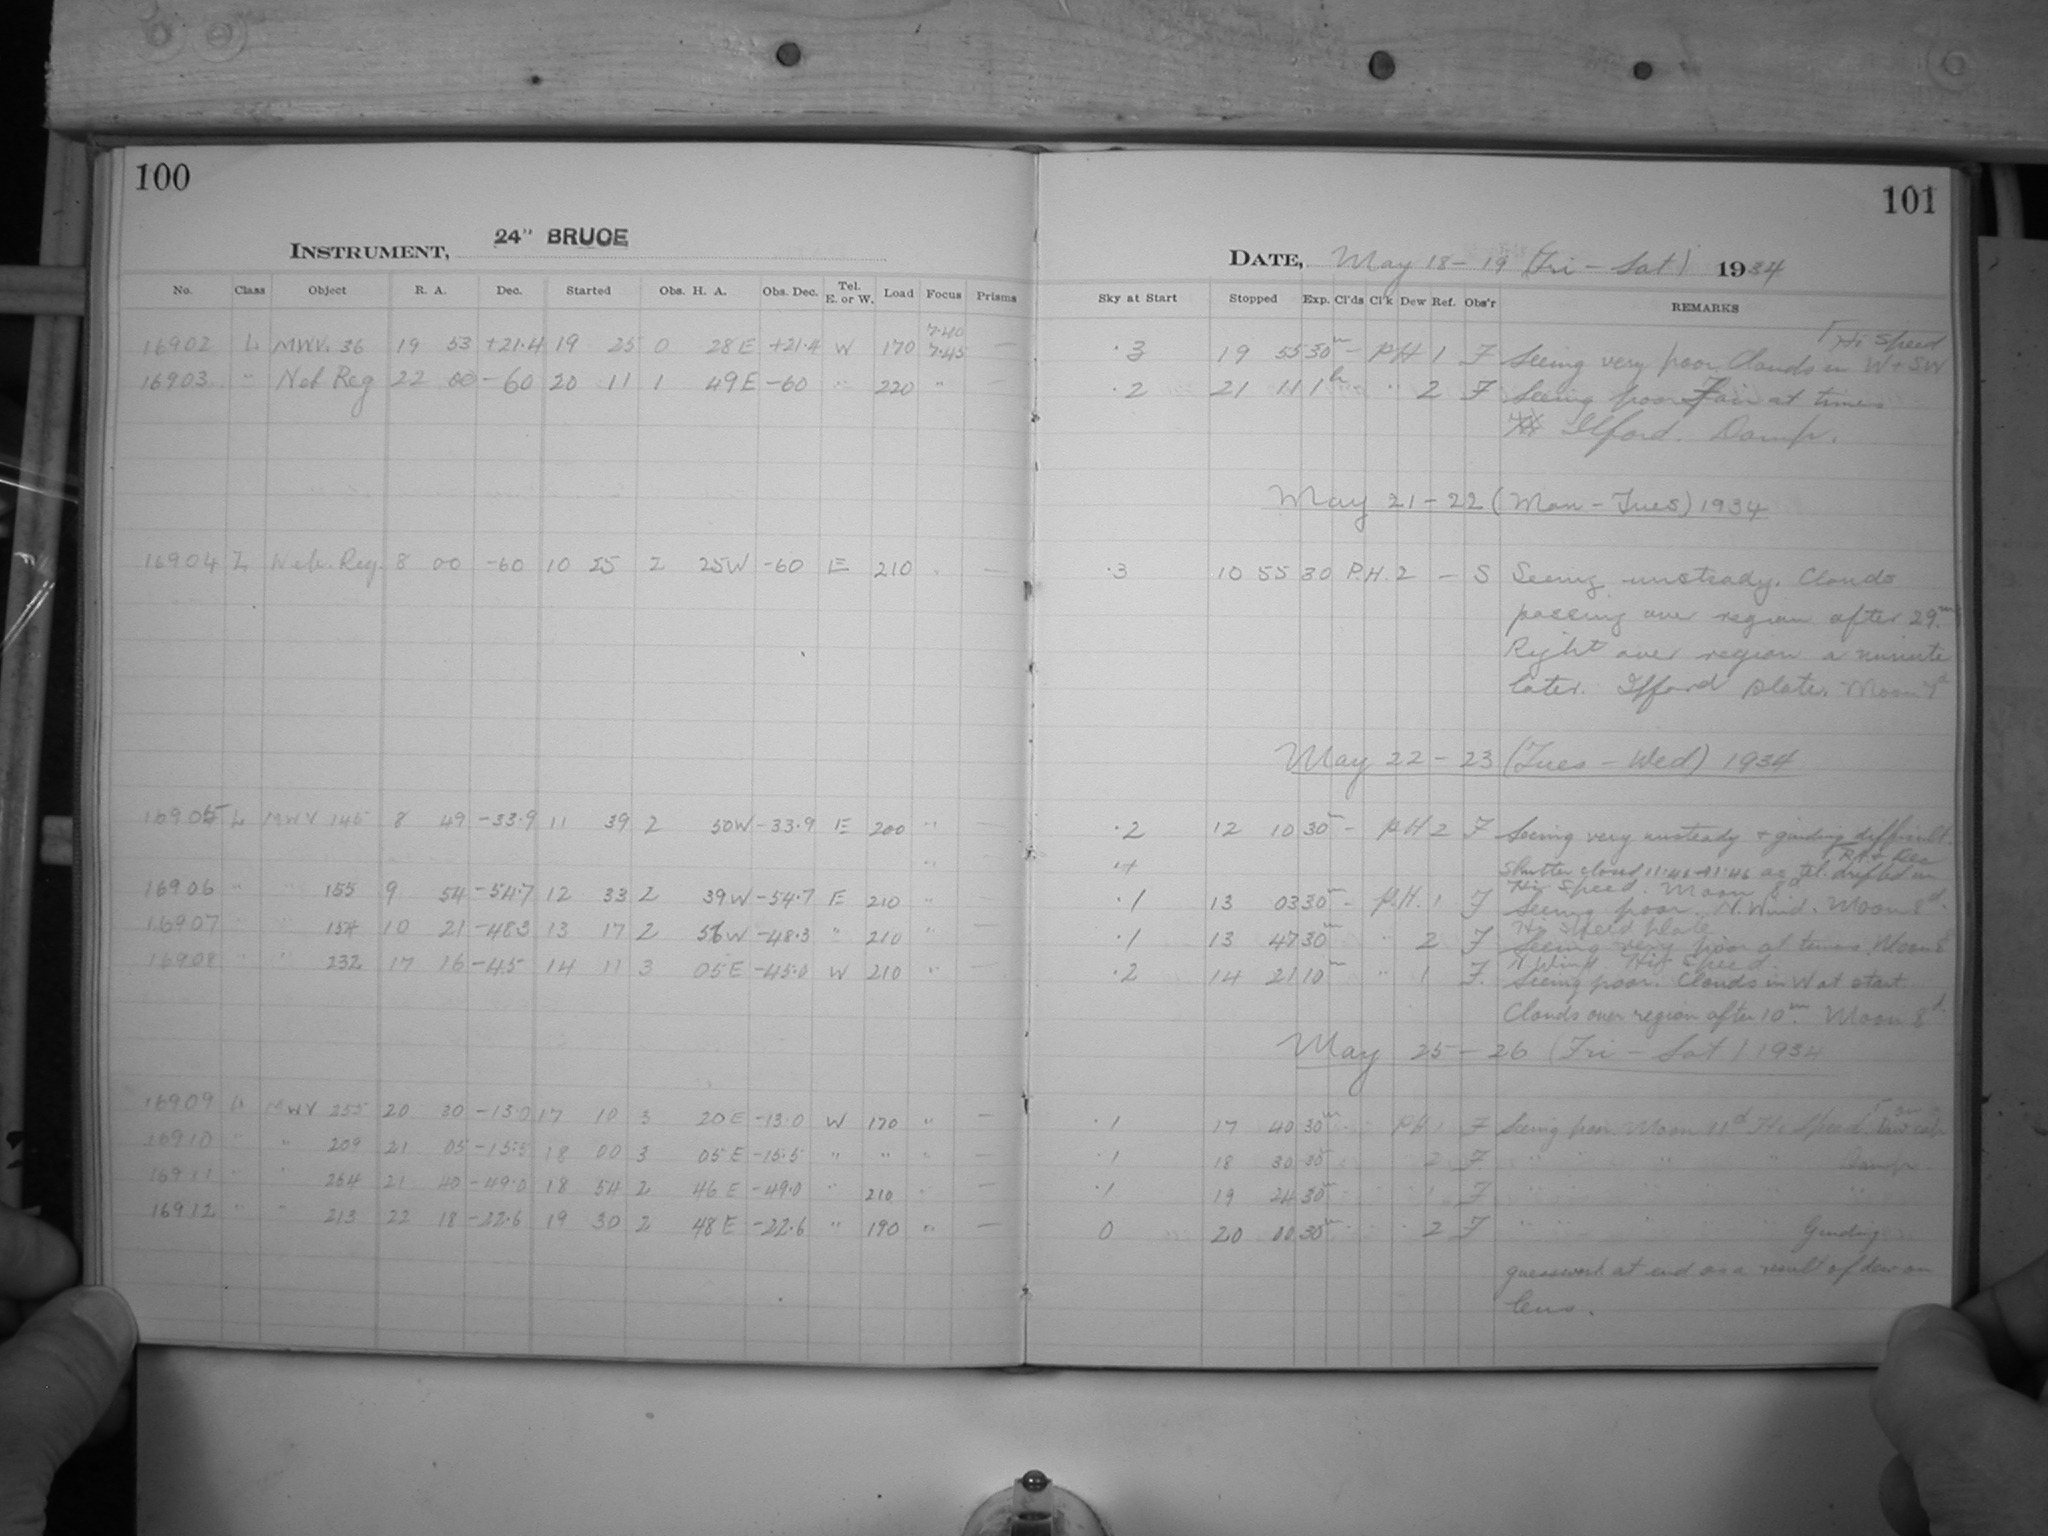 100
INSTRUMENT, 24" BRUCE
No. Class Object R. A. Dec. Started Obs. H. A. Obs. Dec. Tel. E. or W. Load Focus Prisms
7.40
16902 L MWV. 36 19 53 +21.4 19 25 0 28 E +21.4 W 170 7.45 —
16903 " Neb Reg 22 00 -60 20 11 1 49 E -60 " 220 "
16904 L Neb. Reg. 8 00 -60 10 25 2 25 W -60 E 210 " —
16905 L MWV 145 8 49 -33.9 11 39 2 50 W -33.9 E 200 " —
"
16906 " " 155 9 54 -54.7 12 33 2 39 W -54.7 E 210 " —
16907 " " 154 10 21 -48.3 13 17 2 56 W -48.3 " 210 " —
16908 " " 232 17 16 -45 14 11 3 05 E -45.0 W 210 " —
16909 L MWV 255 20 30 -13.0 17 10 3 20 E -13.0 W 170 " —
16910 " " 209 21 05 -15.5 18 00 3 05 E -15.5 " " " —
16911 " " 254 21 40 -49.0 18 54 2 46 E -49.0 " 210 " —
16912 " " 213 22 18 -22.6 19 30 2 48 E -22.6 " 190 " —
101
DATE, May 18 - 19 (Fri - Sat) 1934
Sky at Start Stopped Exp. Cl'ds Cl'k Dew Ref. Obs'r REMARKS
Hi Speed
.3 19 55 30m — PH 1 F Seeing very poor. Clouds in W + SW
.2 21 11 1h " 2 F Seeing poor Fair at times
Ilford. Damp.
May 21 - 22 (Mon - Tues) 1934
.3 10 55 30 P.H. 2 — S Seeing unsteady. Clouds
passing over region after 29m.
Right over region a minute
later. Ilford plate. Moon
May 22 - 23 (Tues - Wed) 1934
.2 12 10 30m — PH 2 F Seeing very unsteady + guiding difficult.
R.A + Dec
Shutter closed 11:46 as tel. drifted in
Hi Speed. Moon 8d
.1 13 03 30m — P.H. 1 F Seeing poor. N. Wind. Moon 8d.
Hi Speed plate
.1 13 47 30m " 2 F Seeing very poor at times. Moon 8
N Wind Hi Speed
.2 14 21 10m " 1 F. Seeing poor. Clouds in W at start.
Clouds over region after 10m. Moon 8d
May 25 - 26 (Fri - Sat) 1934
.1 17 40 30m PH 1 F Seeing poor. Moon 11d Hi Speed. Dew on
.1 18 30 30m 2 F " " " " Damp
.1 19 24 30m 1 F " " "
0 20 00 30m 2 F " Guiding
guesswork at end as a result of dew on
lens.